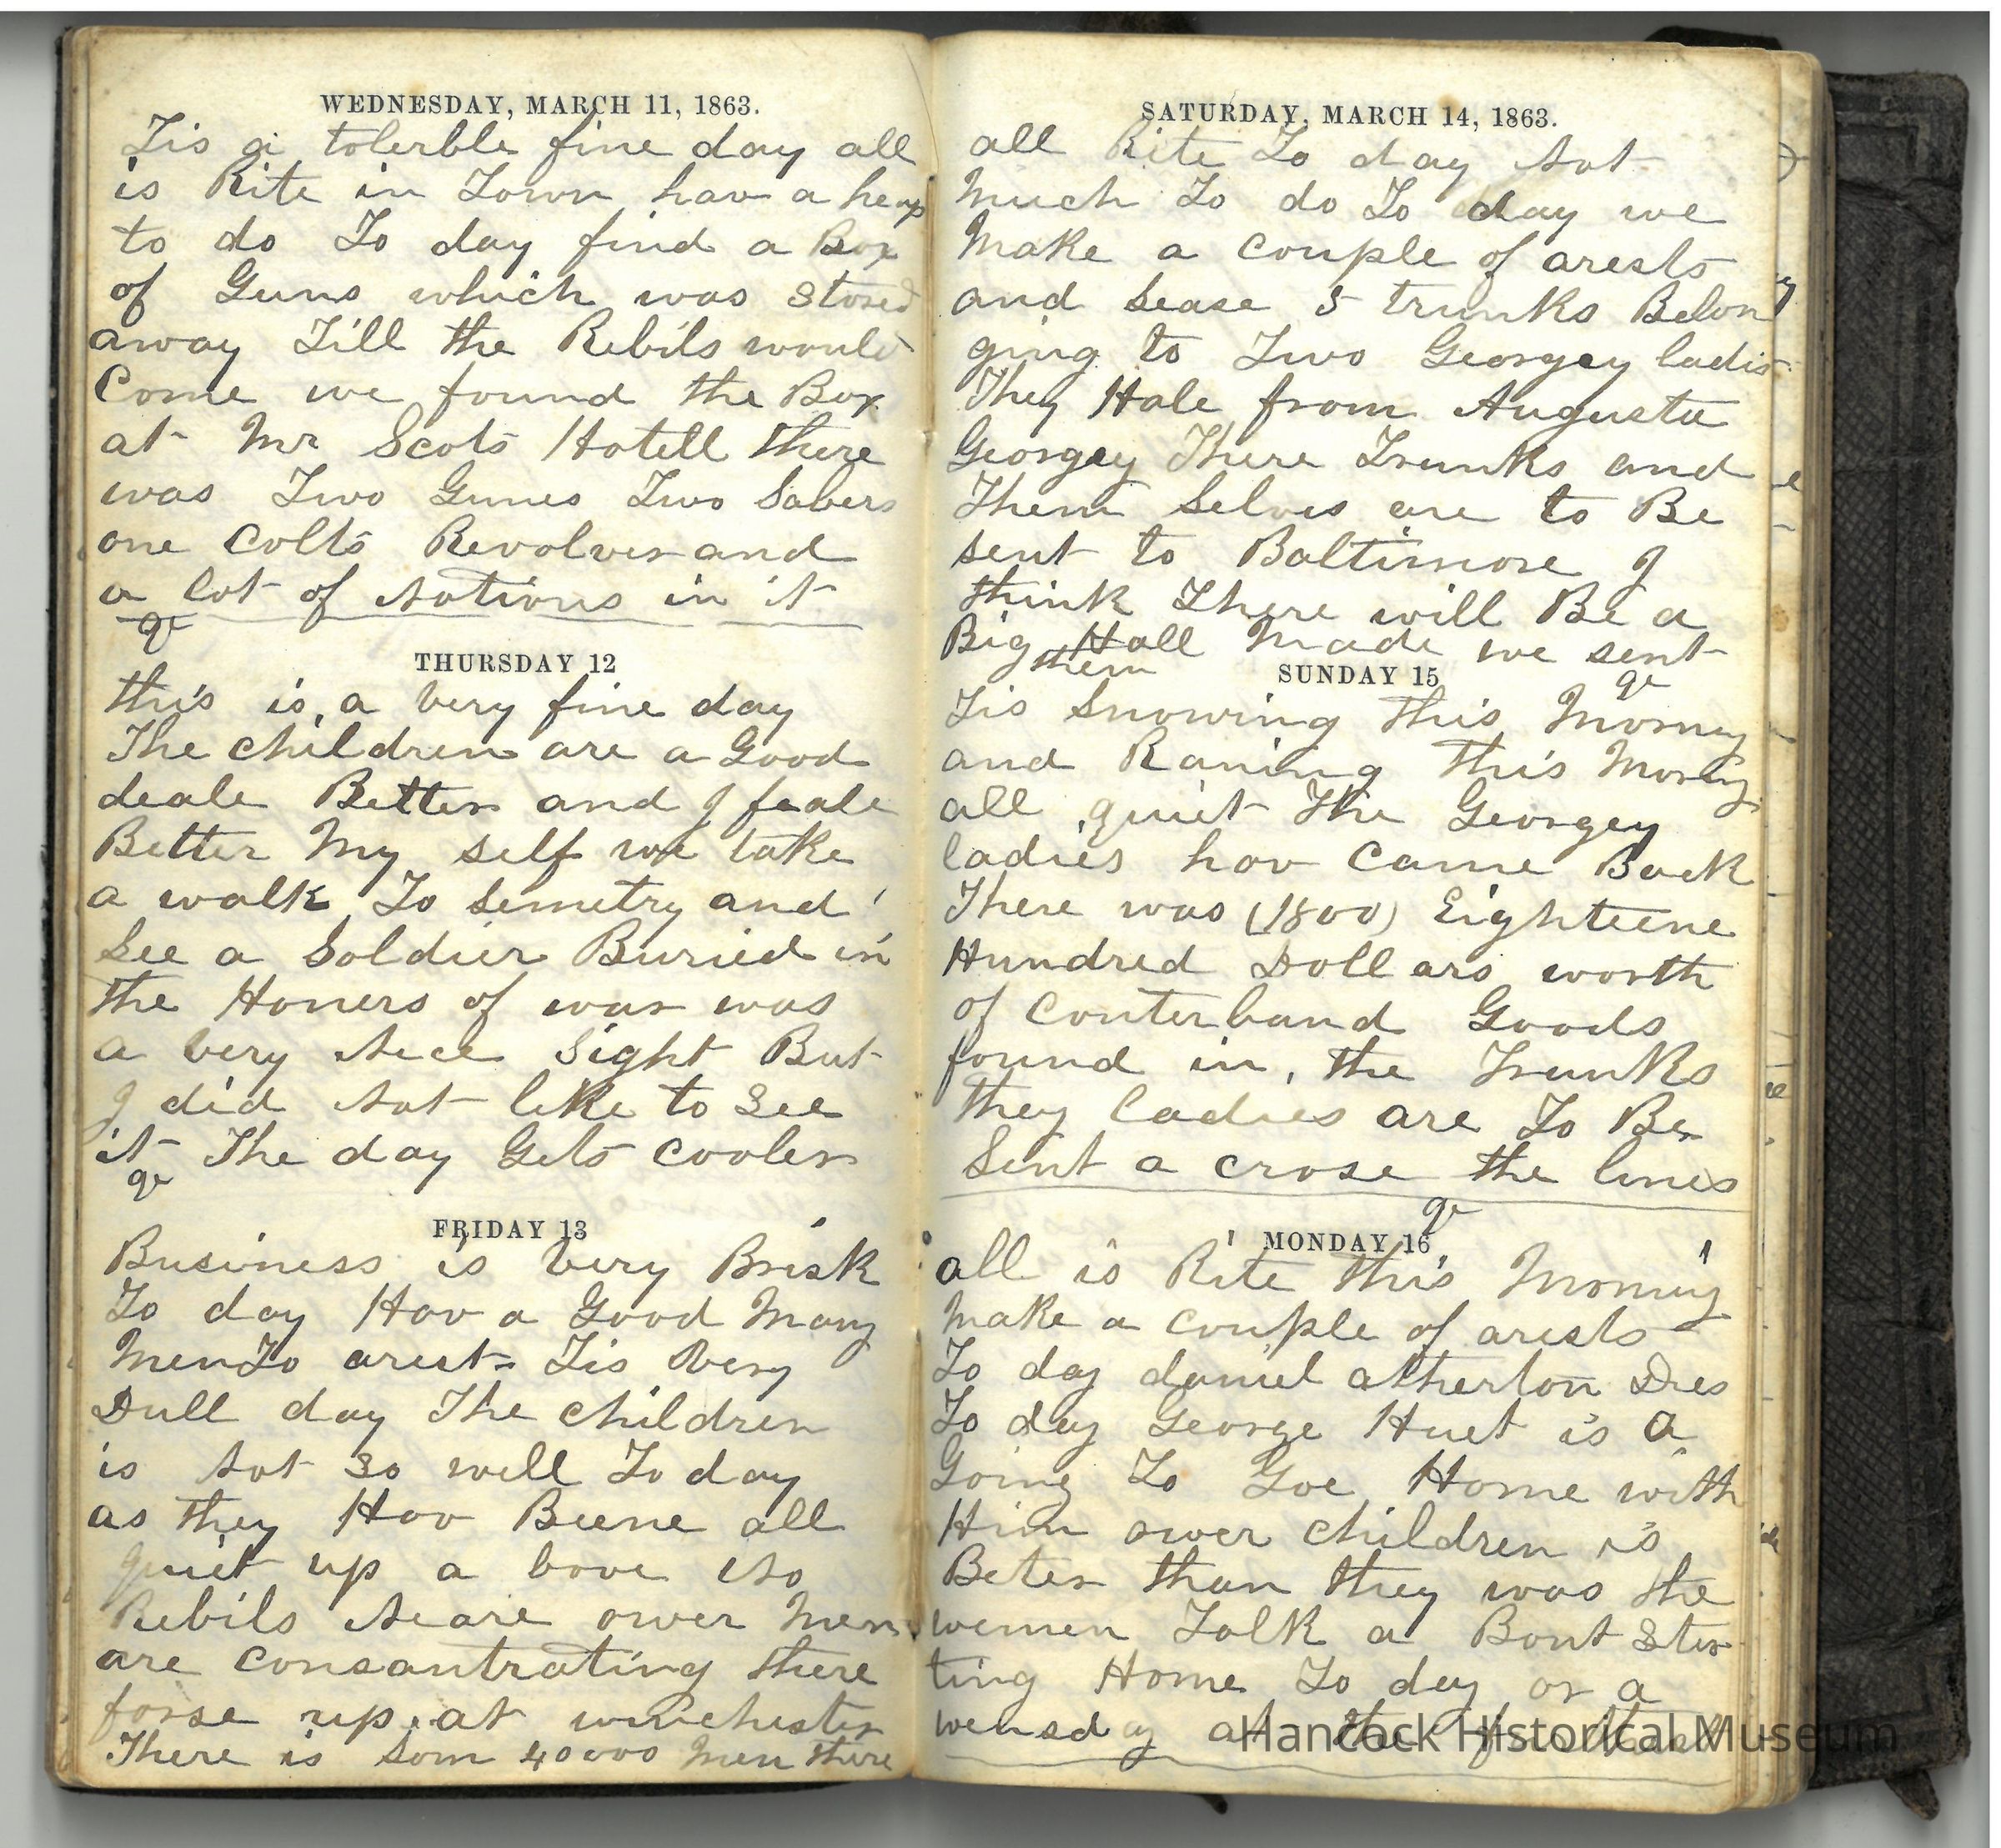 WEDNESDAY, MARCH 11, 1863.
Tis a tolerble fine day all
is Rite in Town hav a heap
to do To day find a Box
of Guns which was stored
away Till the Rebils would
Come we found the Box
at Mr Scots Hotell there
was Two Gunes Two Sabers
one Colts Revolver and
a lot of Notions in it
THURSDAY 12
this is a very fine day
The children are a Good
deale Better and I feale
Better My self we take
a walk To semetry and
See a Soldier Buried in
the Honers of war was
a very Nice Sight But
I did Not like to see
it The day Gets cooler
FRIDAY 13
Business is very Brisk
To day Hav a Good Many
Men To arest Tis very
Dull day The children
is Not so well To day
as they Hav Beene all
quiet up a bove No
Rebils Neare ower Men
are consantrating there
forse up at winchester
There is Som 40000 Men there
SATURDAY, MARCH 14, 1863.
all Rite To day Not
Much To do To day we
Make a couple of arests
and sease 5 trunks Belon
ging to Two Georgey ladis
They Hale from Augusta
Georgey There Trunks and
Them Selves are to Be
sent to Baltimore I
think There will Be a
Big Hall Made we sent
them
SUNDAY 15
Tis Snowing This Morning
and Raning This Morning
all quiet The Georgey
ladies hav Came Back
There was (1800) Eighteene
Hundred Dollars worth
of Conterband Goods
found in the Trunks
they ladies are To Be
Sent a crose the lines
MONDAY 16
all is Rite this Morning
Make a couple of arests
To day daniel atherton Dies
To day George Huet is a
Going To Goe Home with
Him ower children is
Beter than they was the
wemen Talk a Bout Ster
ting Home To day or a
wensday at the
Hancock Historical Museum